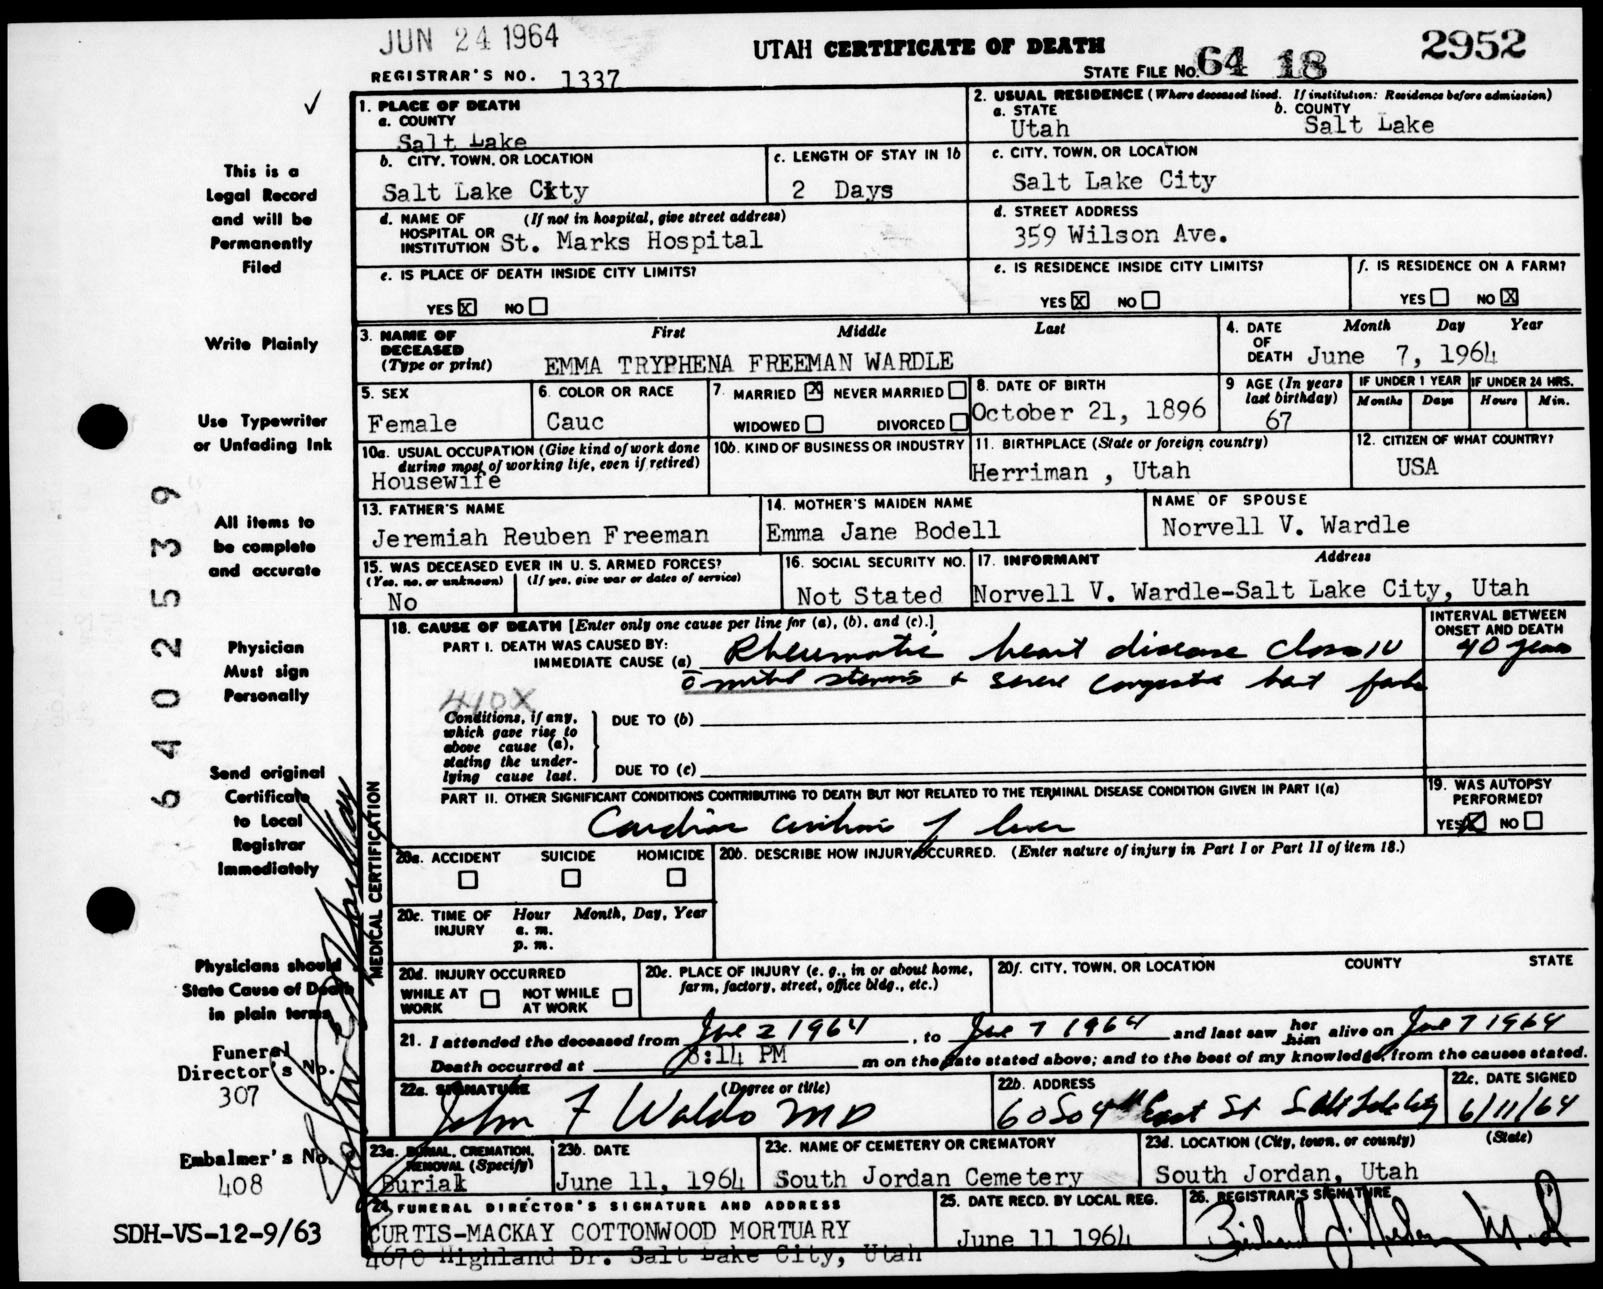 JUN 24 1964
UTAH CERTIFICATE OF DEATH
2952
REGISTRAR'S NO. 1337
STATE FILE NO. 64 18
✓
1. PLACE OF DEATH
a. COUNTY
Salt Lake
2. USUAL RESIDENCE (Where deceased lived. If institution: Residence before admission)
a. STATE
Utah
b. COUNTY
Salt Lake
b. CITY, TOWN, OR LOCATION
Salt Lake City
c. LENGTH OF STAY IN 1b
2 Days
c. CITY, TOWN, OR LOCATION
Salt Lake City
d. NAME OF (If not in hospital, give street address)
HOSPITAL OR
INSTITUTION St. Marks Hospital
d. STREET ADDRESS
359 Wilson Ave.
e. IS PLACE OF DEATH INSIDE CITY LIMITS?
YES X NO
e. IS RESIDENCE INSIDE CITY LIMITS?
YES X NO
f. IS RESIDENCE ON A FARM?
YES NO X
3. NAME OF
DECEASED
(Type or print)
First Middle Last
EMMA TRYPHENA FREEMAN WARDLE
4. DATE OF DEATH
Month Day Year
June 7, 1964
5. SEX
Female
6. COLOR OR RACE
Cauc
7. MARRIED X NEVER MARRIED
WIDOWED DIVORCED
8. DATE OF BIRTH
October 21, 1896
9 AGE (In years
last birthday)
67
IF UNDER 1 YEAR
Months Days
IF UNDER 24 HRS.
Hours Min.
10a. USUAL OCCUPATION (Give kind of work done
during most of working life, even if retired)
Housewife
10b. KIND OF BUSINESS OR INDUSTRY
11. BIRTHPLACE (State or foreign country)
Herriman , Utah
12. CITIZEN OF WHAT COUNTRY?
USA
13. FATHER'S NAME
Jeremiah Reuben Freeman
14. MOTHER'S MAIDEN NAME
Emma Jane Bodell
NAME OF SPOUSE
Norvell V. Wardle
15. WAS DECEASED EVER IN U. S. ARMED FORCES?
(Yes, no, or unknown) (If yes, give war or dates of service)
No
16. SOCIAL SECURITY NO.
Not Stated
17. INFORMANT Address
Norvell V. Wardle-Salt Lake City, Utah
MEDICAL CERTIFICATION
18. CAUSE OF DEATH [Enter only one cause per line for (a), (b), and (c).]
INTERVAL BETWEEN
ONSET AND DEATH
PART I. DEATH WAS CAUSED BY:
IMMEDIATE CAUSE (a) Rheumatic heart disease class IV
40 years
mitral stenosis + severe congestive heart
410X
Conditions, if any,
which gave rise to
above cause (a),
stating the under-
lying cause last.
DUE TO (b)
DUE TO (c)
PART II. OTHER SIGNIFICANT CONDITIONS CONTRIBUTING TO DEATH BUT NOT RELATED TO THE TERMINAL DISEASE CONDITION GIVEN IN PART I(a)
Cardiac cirrhosis of liver
19. WAS AUTOPSY
PERFORMED?
YES X NO
20a. ACCIDENT SUICIDE HOMICIDE
20b. DESCRIBE HOW INJURY OCCURRED. (Enter nature of injury in Part I or Part II of item 18.)
20c. TIME OF
INJURY
Hour Month, Day, Year
a. m.
p. m.
20d. INJURY OCCURRED
WHILE AT
WORK
NOT WHILE
AT WORK
20e. PLACE OF INJURY (e. g., in or about home,
farm, factory, street, office bldg., etc.)
20f. CITY, TOWN, OR LOCATION COUNTY STATE
21. I attended the deceased from June 2 1964, to June 7 1964 and last saw her him alive on June 7 1964
Death occurred at 8:14 PM m on the date stated above; and to the best of my knowledge, from the causes stated.
22a. SIGNATURE (Degree or title)
John F Waldo MD
22b. ADDRESS
60 So 4th East St Salt Lake City
22c. DATE SIGNED
6/11/64
23a. BURIAL, CREMATION,
REMOVAL (Specify)
Burial
23b. DATE
June 11, 1964
23c. NAME OF CEMETERY OR CREMATORY
South Jordan Cemetery
23d. LOCATION (City, town, or county) (State)
South Jordan, Utah
24. FUNERAL DIRECTOR'S SIGNATURE AND ADDRESS
CURTIS-MACKAY COTTONWOOD MORTUARY
4670 Highland Dr. Salt Lake City, Utah
25. DATE RECD. BY LOCAL REG.
June 11 1964
26. REGISTRAR'S SIGNATURE
This is a
Legal Record
and will be
Permanently
Filed
Write Plainly
Use Typewriter
or Unfading Ink
All items to
be complete
and accurate
Physician
Must sign
Personally
Send original
Certificate
to Local
Registrar
Immediately
Physicians should
State Cause of Death
in plain terms
Funeral
Director's No.
307
Embalmer's No.
408
SDH-VS-12-9/63
640253 9